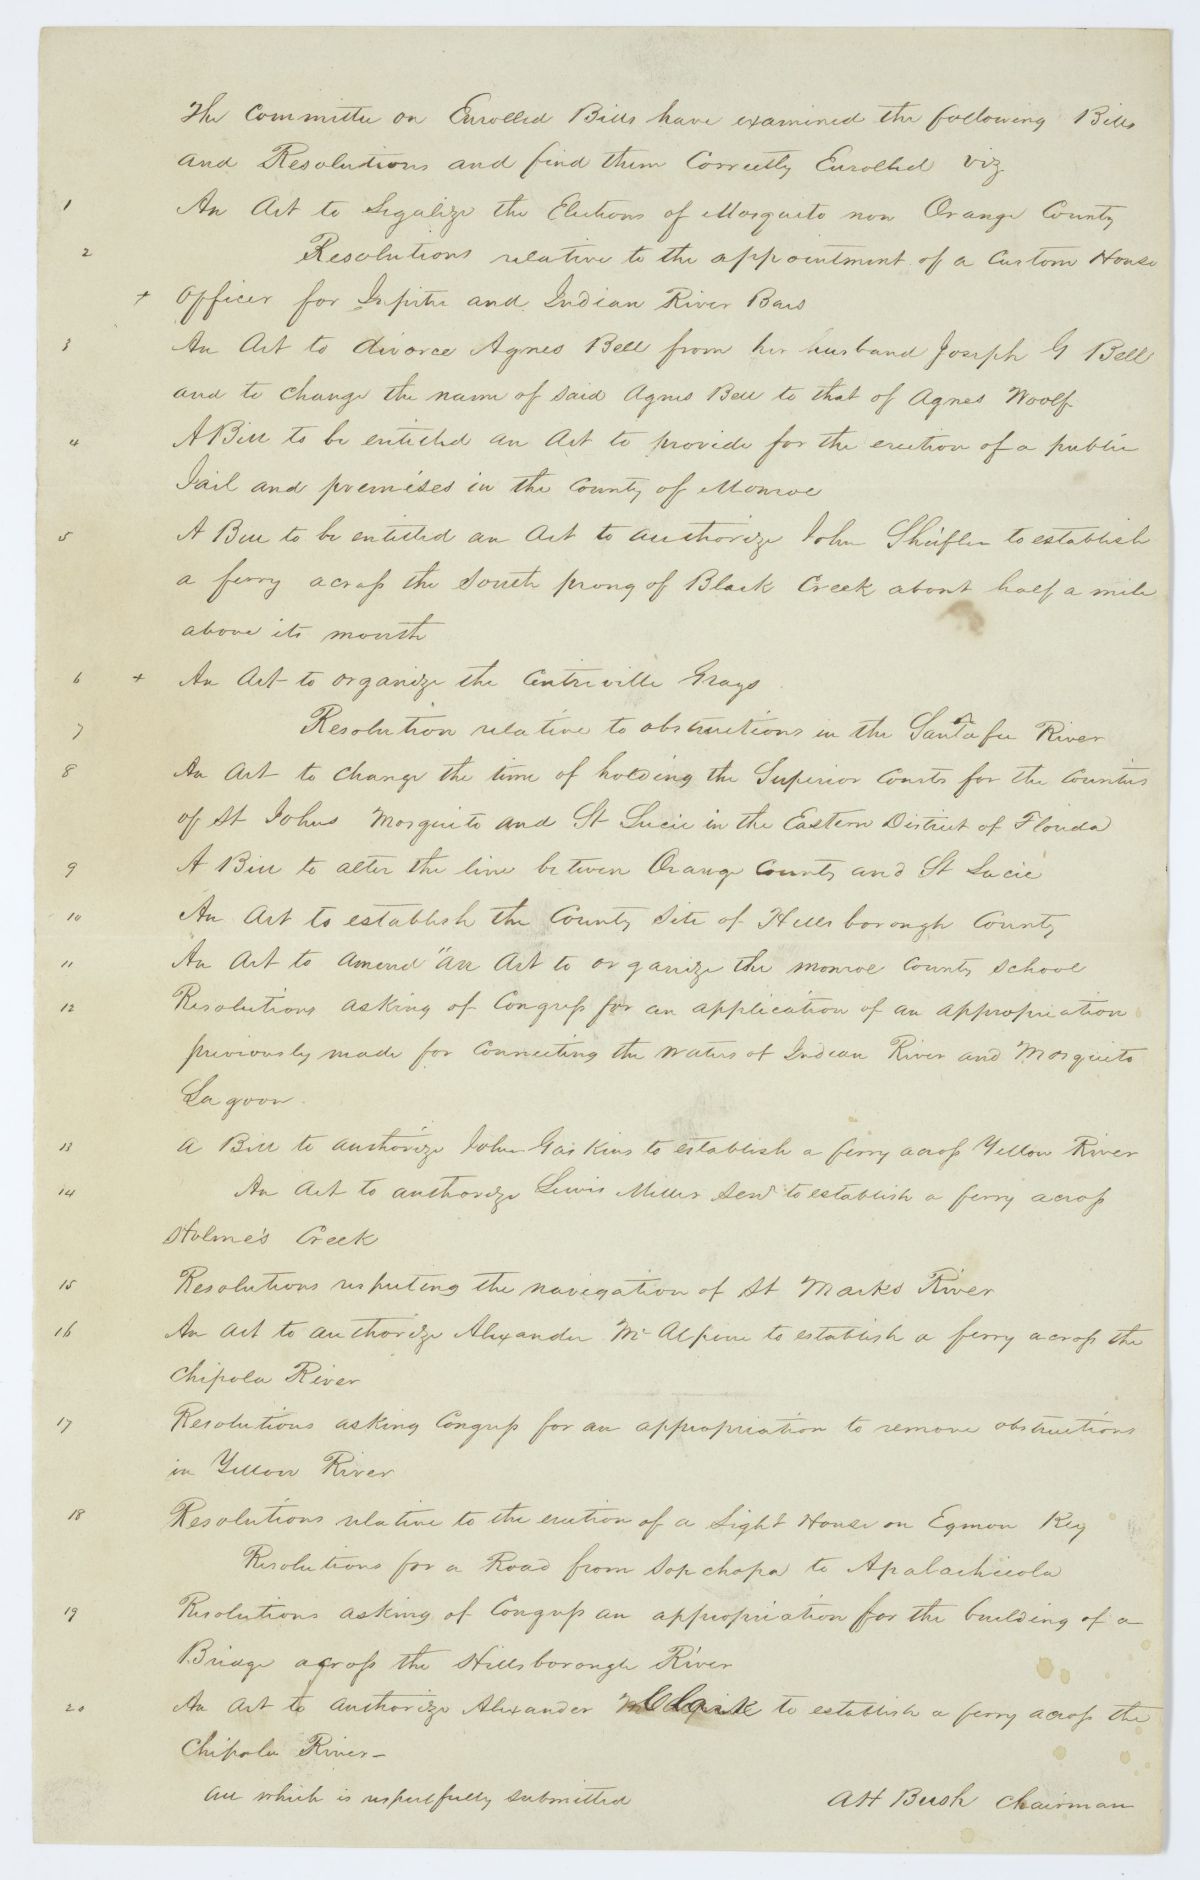 The Committee on Enrolled Bills have examined the following Bills
and Resolutions and find them Correctly Enrolled viz
1 An Act to Legalize the Elections of Mosquito now Orange County
2 Resolutions relative to the appointment of a Custom House
+ officer for Jupiter and Indian River Bars
3 An Act to divorce Agnes Bell from her husband Joseph G Bell
and to change the name of said Agnes Bell to that of Agnes Woolf
4 A Bill to be entitled an Act to provide for the erection of a public
Jail and premises in the County of Monroe
5 A Bill to be entitled an Act to authorize John to establish
a ferry across the South prong of Black Creek about half a mile
above its mouth
6 + An Act to organize the Centreville Grays
7 Resolution relative to obstructions in the Santa fee River
8 An Act to change the time of holding the Superior Courts for the Counties
of St Johns Mosquito and St Lucie in the Eastern District of Florida
9 A Bill to alter the line between Orange County and St Lucie
10 An Act to establish the County Site of Hillsborough County
11 An Act to amend "an Act to organize the monroe County school
12 Resolutions asking of Congress for an application of an appropriation
previously made for connecting the waters of Indian River and Mosquito
Lagoon
13 A Bill to authorize John Gaskins to establish a ferry across Yellow River
14 An Act to authorize Lewis Miller Senr to establish a ferry across
Holme's Creek
15 Resolutions respecting the navigation of St Marks River
16 An Act to authorize Alexander Mc Alpine to establish a ferry across the
Chipola River
17 Resolutions asking Congress for an appropriation to remove obstructions
in Yellow River
18 Resolutions relative to the erection of a Light House on Egmon Key
Resolutions for a Road from Sopchopa to Apalachicola
19 Resolutions asking of Congress an appropriation for the building of a
Bridge across the Hillsborough River
20 An Act to authorize Alexander to establish a ferry across the
Chipola River –
all which is respectfully submitted
A H Bush Chairman